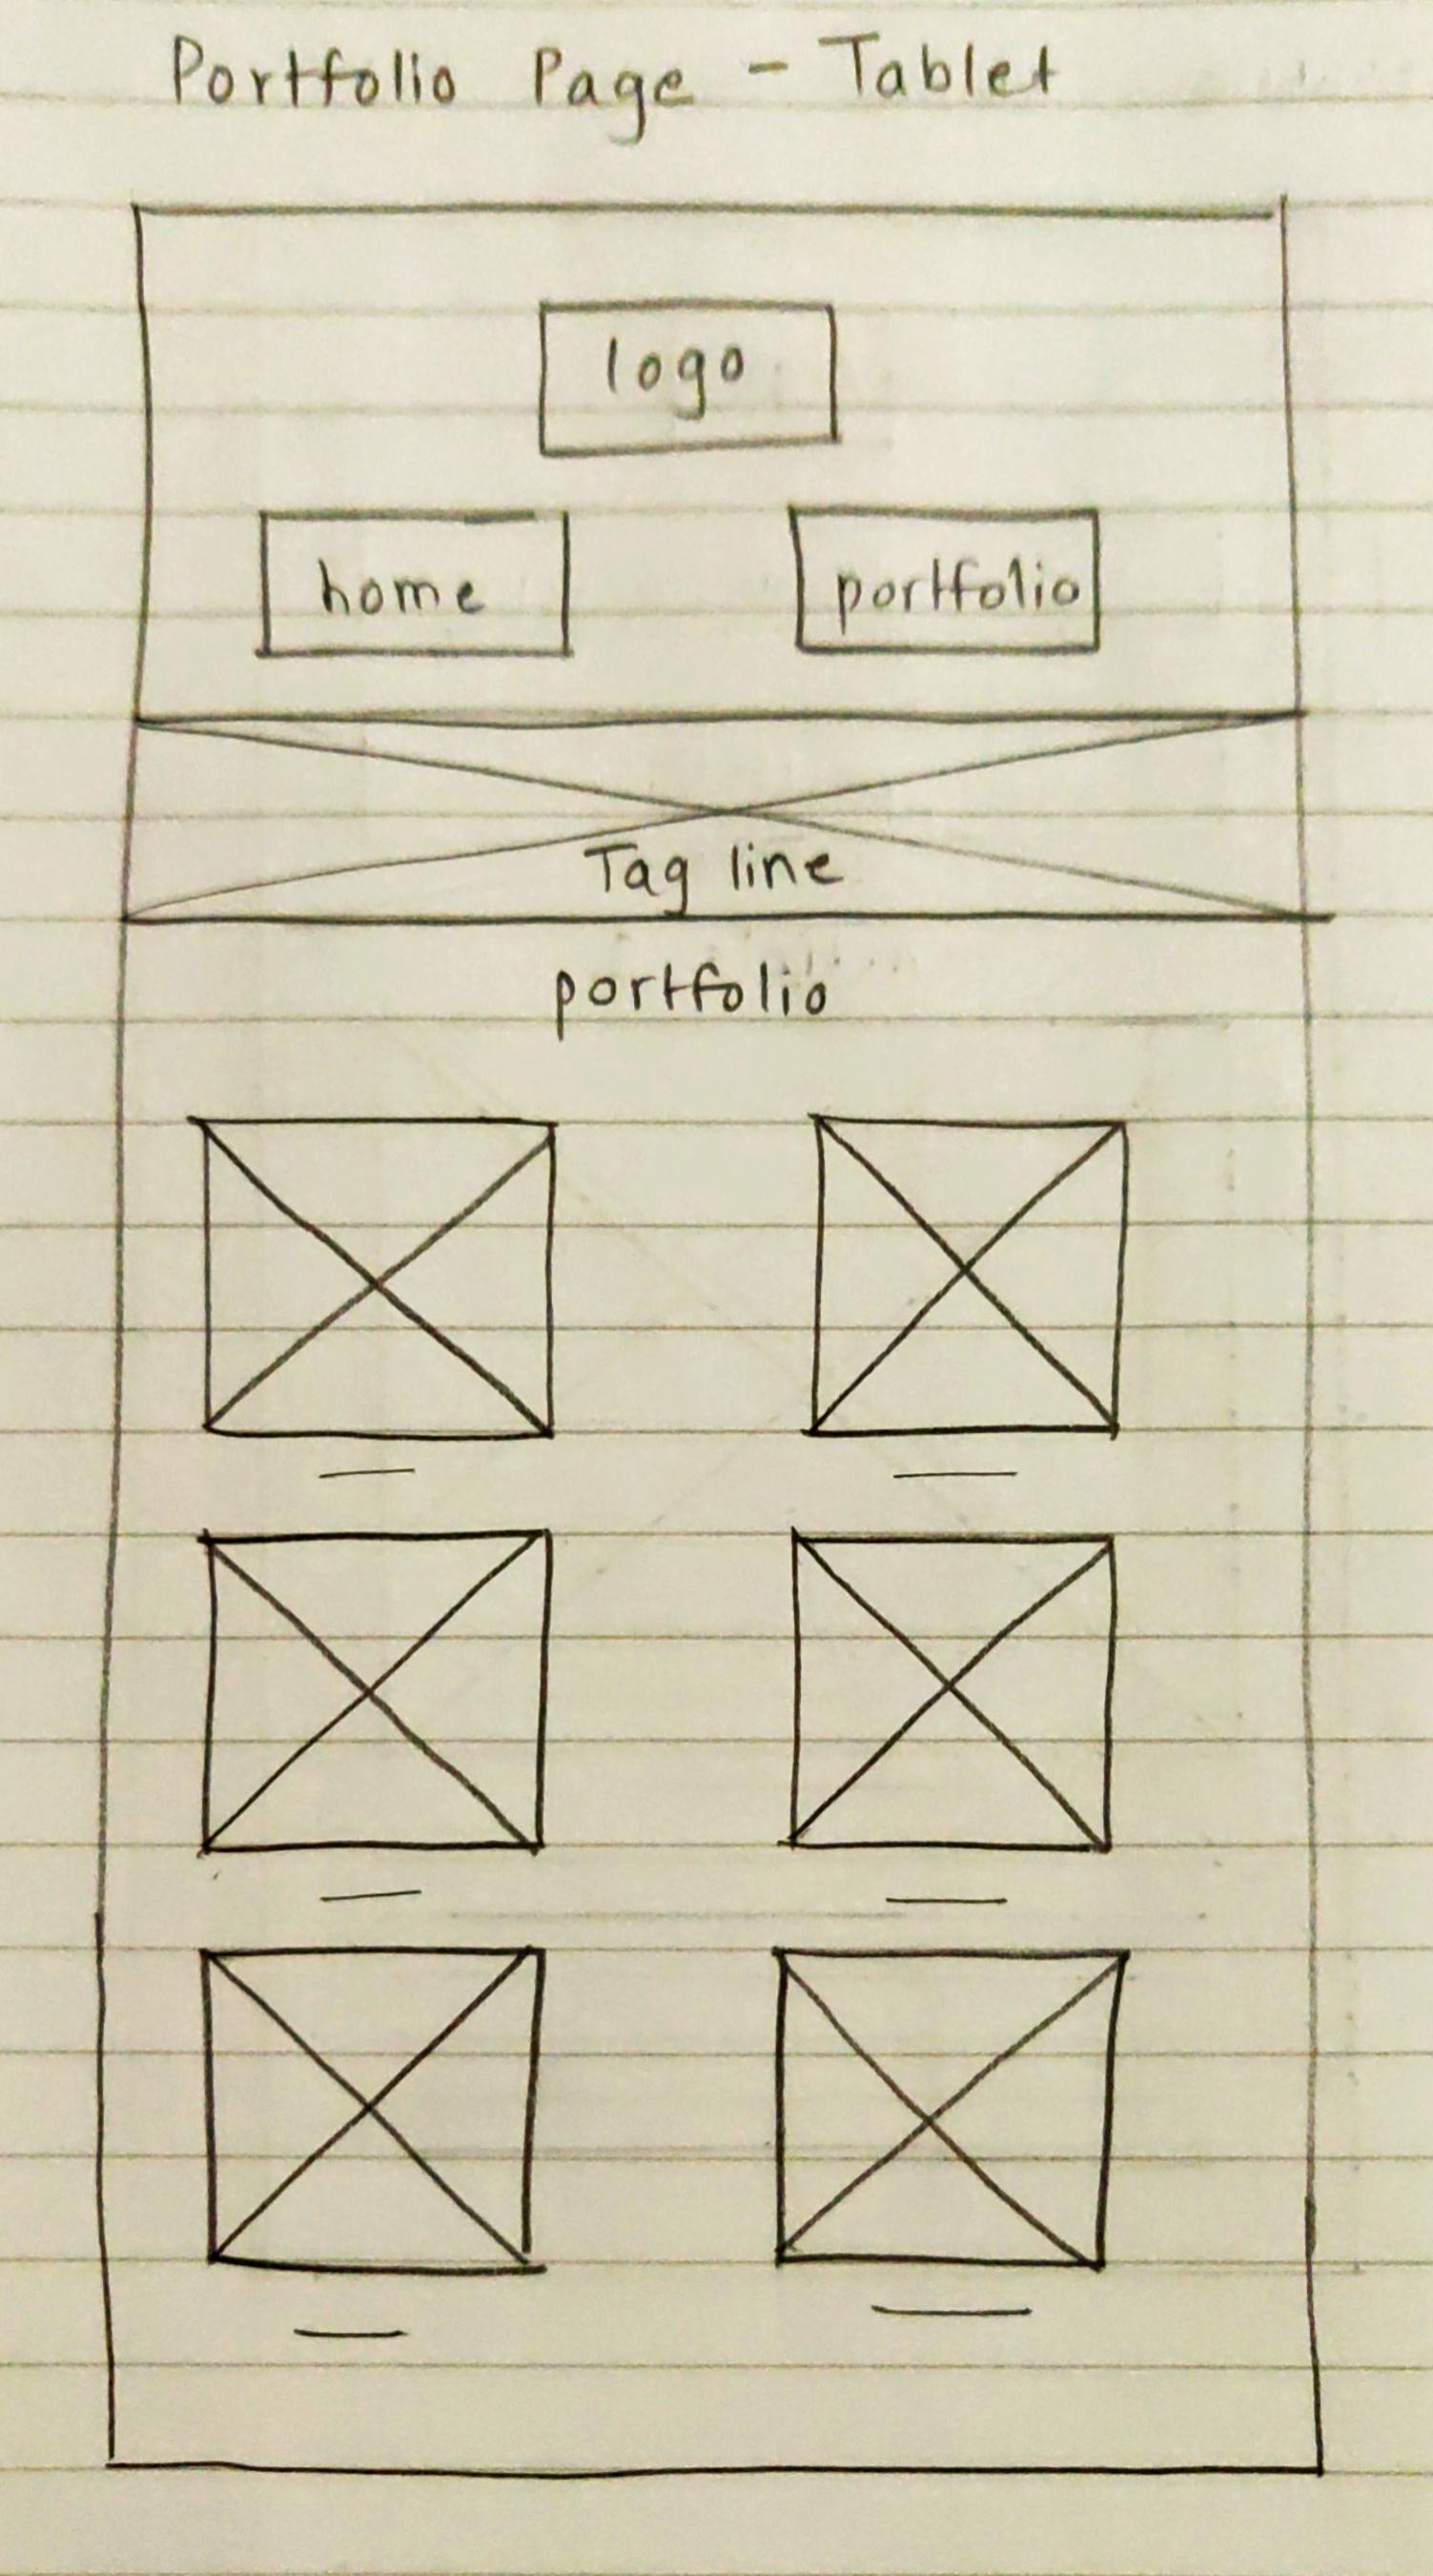 Portfolio Page - Tablet
logo
home portfolio
Tag line
portfolio